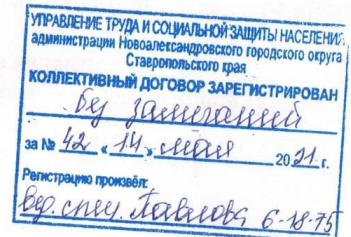 УПРАВЛЕНИЕ ТРУДА И СОЦИАЛЬНОЙ ЗАЩИТЫ НАСЕЛЕНИЯ
администрации Новоалександровского городского округа
Ставропольского края
КОЛЛЕКТИВНЫЙ ДОГОВОР ЗАРЕГИСТРИРОВАН
без замечаний
за № 42 « 14 » мая 2021 г.
Регистрацию произвёл:
вед. спец. Павлова 6-18-75